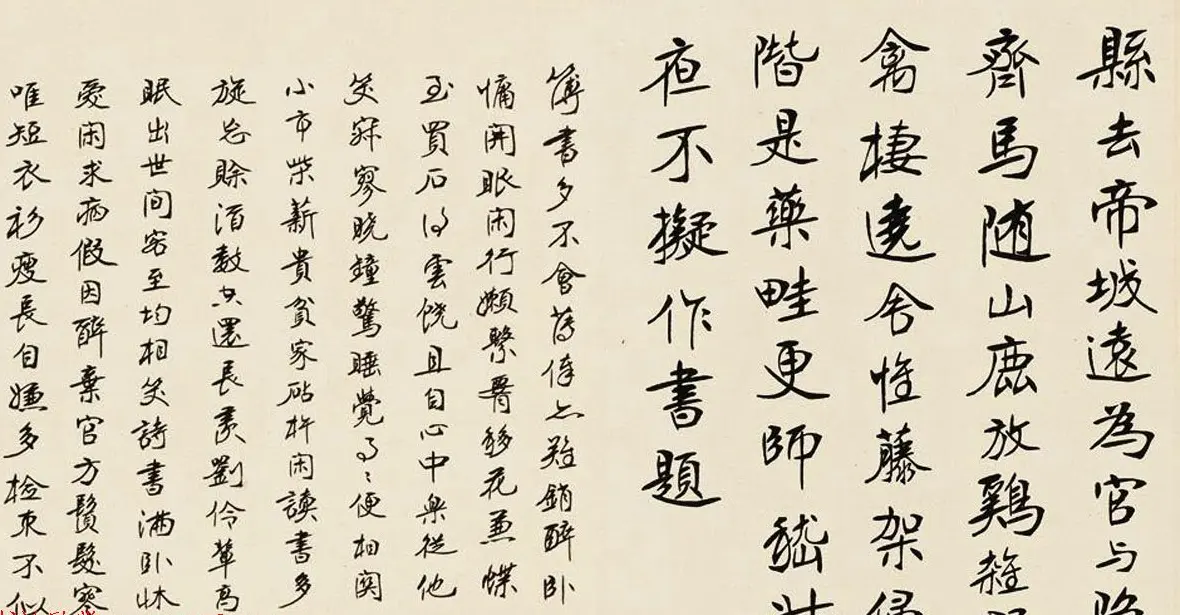 縣去帝城遠為官与隐
齊馬随山鹿放鷄雜
禽棲遶舍惟藤架侵
階是藥畦更師嵇
夜不擬作書題
簿書多不會薄俸亦難銷醉卧
慵開眼閑行嬾繫腰移花兼蝶
至買石得雲饒且自心中樂從他
笑寂寥曉鐘驚睡覺事々便相関
小市柴薪貴貧家砧杵閑讀書多
旋忘賒酒數空還長羨劉伶輩高
眠出世间客至均相笑詩書满卧牀
愛閑求病假因醉棄官方鬢髮寒
唯短衣衫瘦長自嫌多檢束不似